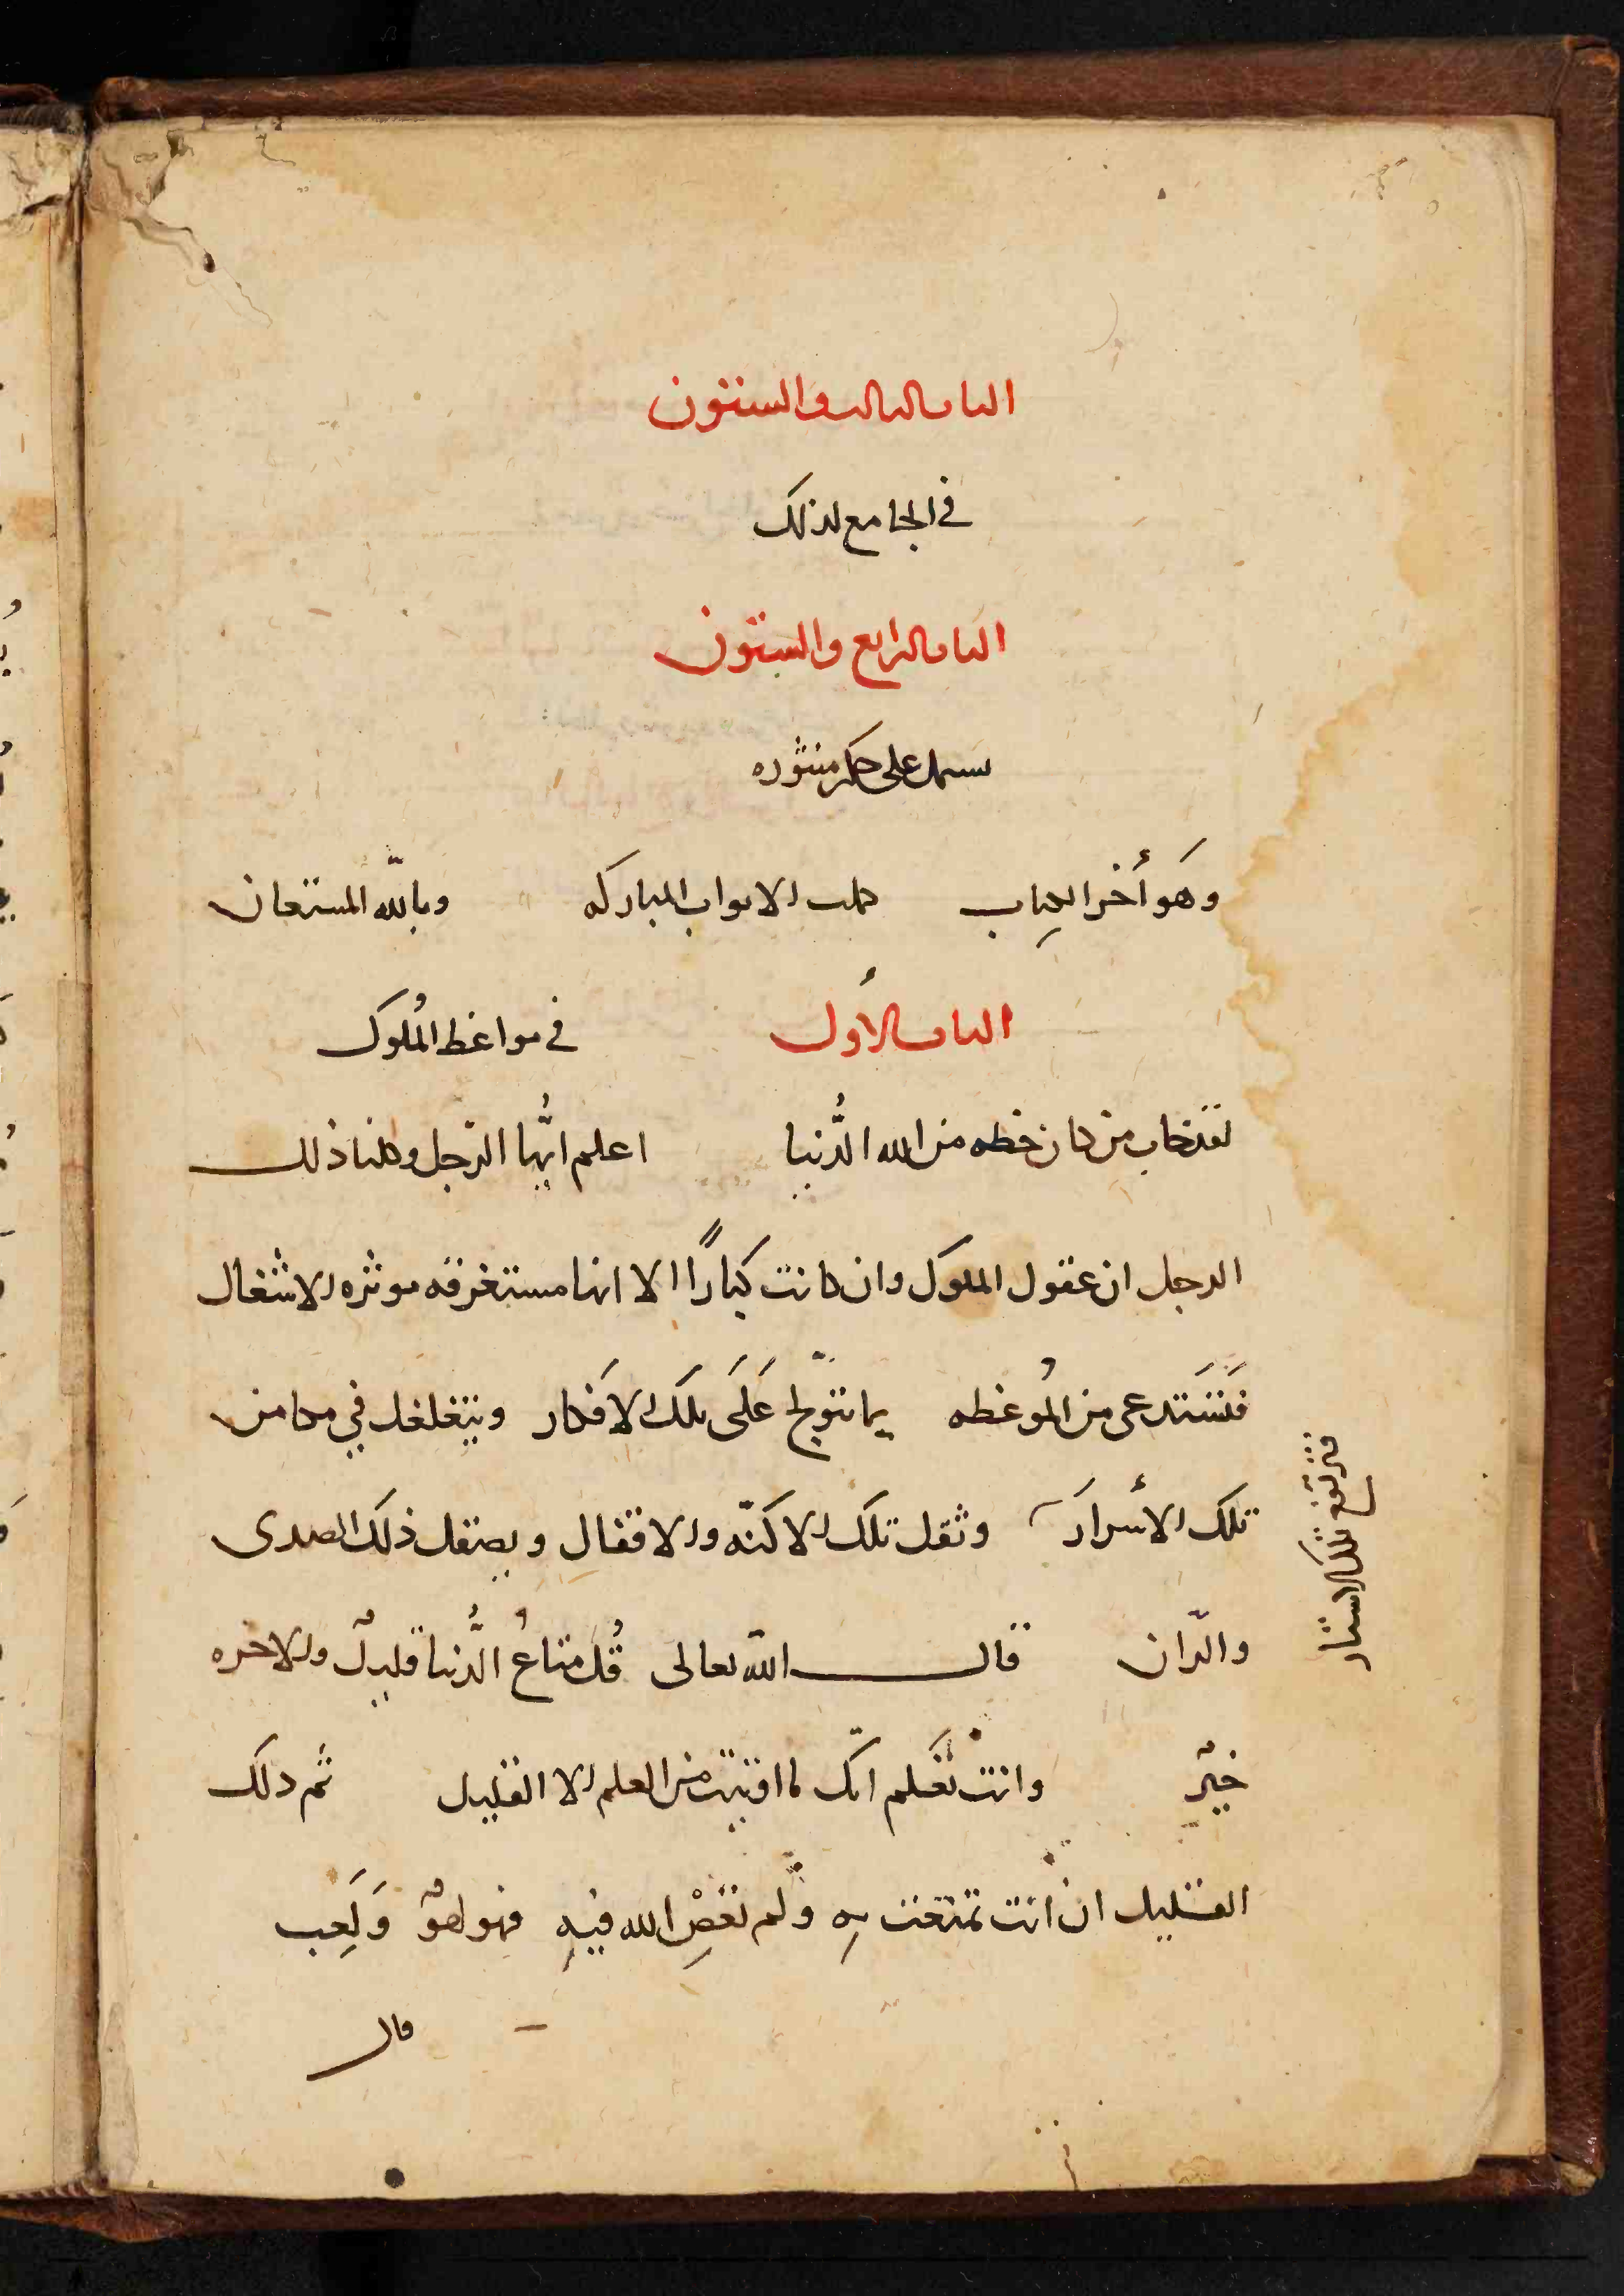 الباب الثالث والستون
في الجامع لذلك
الباب الرابع والستون
يشتمل على حكم منثوره
وهو أخر الكتاب تمت الابواب المباركه وبالله المستعان
الباب الأول في مواعظ الملوك
لقد خاب من كان حظه من الله الدُّنيا اعلم ايُّها الرّجل وكلنا ذلك
الرجل ان عقول الملوك وان كانت كبارًا الا انها مستغرقه بكثره الاشتغال
فتستدعى من المُوعظه بما يتولّج عَلَى تلك الافكار ويتغلغل في مكامن
تلك الأسرار وثقل تلك الاكنّه والاقفال ويصقل ذلك الصدى
والرّان قال الله تعالى قُل متاعُ الدُّنيا قليلٌ والاخره
خيرٌ وانت تعلم انّك ما اوتيت من العلم الا القليل ثم ذلك
القليل ان انت تمتعت به ولم تعصِ الله فيهِ فهو لهوٌ وَلَعِب
قال
فترتفع تلك الاستار